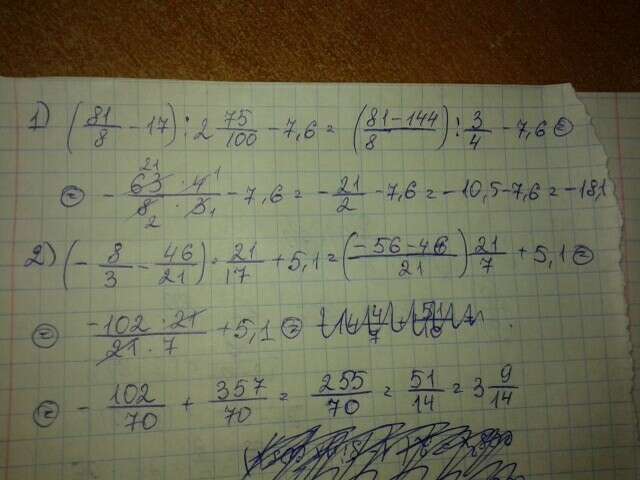 1) (81/8 - 17) : 2 75/100 - 7,6 = (81-144/8) : 3/4 - 7,6 =
= - 63 · 4/8 · 3 - 7,6 = - 21/2 - 7,6 = - 10,5 - 7,6 = - 18,1
2) (- 8/3 - 46/21) · 21/17 + 5,1 = (- 56 - 46/21) 21/7 + 5,1 =
= -102 · 21/21 · 7 + 5,1 =
= - 102/70 + 357/70 = 255/70 = 51/14 = 3 9/14